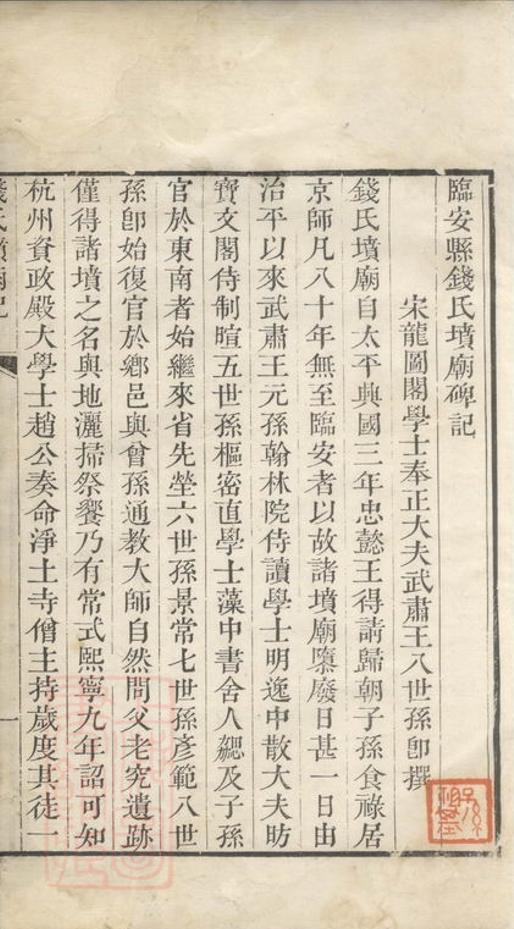 臨安縣錢氏墳廟碑記
宋龍圖閣學士奉正大夫武肅王八世孫卽撰
錢氏墳廟自太平興國三年忠懿王得請歸朝子孫食祿居
京師凡八十年無至臨安者以故諸墳廟隳廢日甚一日由
治平以來武肅王元孫翰林院侍讀學士明逸中散大夫昉
寶文閣侍制暄五世孫樞密直學士藻中書舍人勰及子孫
官於東南者始繼來省先塋六世孫景常七世孫彥範八世
孫卽始復官於鄉邑與曾孫通教大師自然問父老究遺跡
僅得諸墳之名與地灑掃祭饗乃有常式熙寧九年詔可知
杭州資政殿大學士趙公奏命淨土寺僧主持歲度其徒一
錢氏墳廟記
一